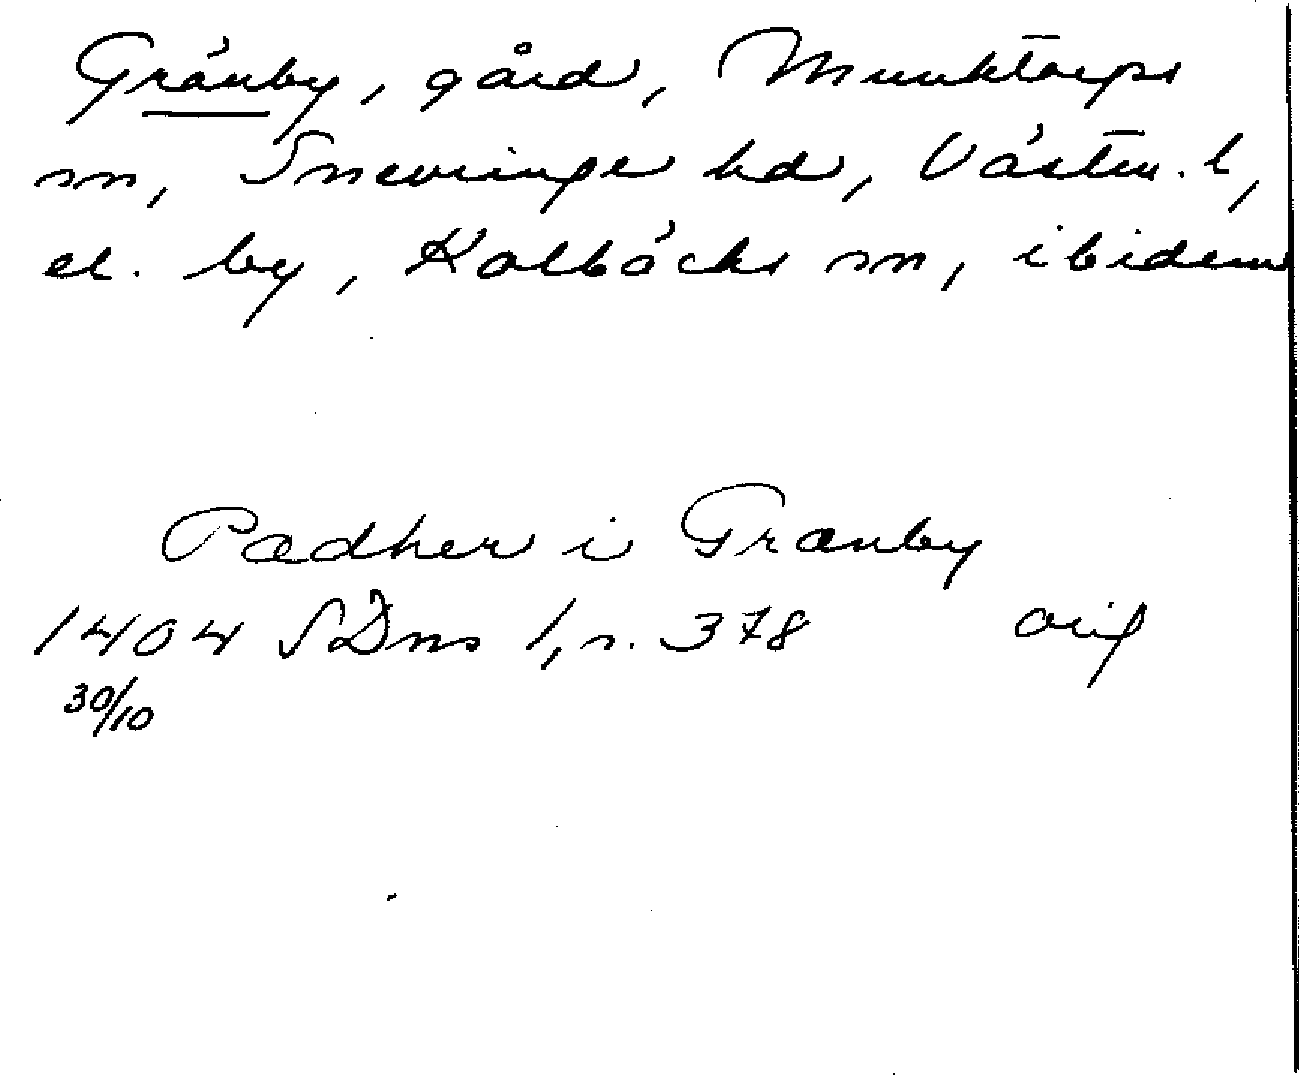 Gränby, gård, Munktorps
sn, Snevringe hd, Västm. l,
el. by, Kolbäcks sn, ibidem
Pædher i Grænby
1404 SDns 1, s. 378 orig
30/10